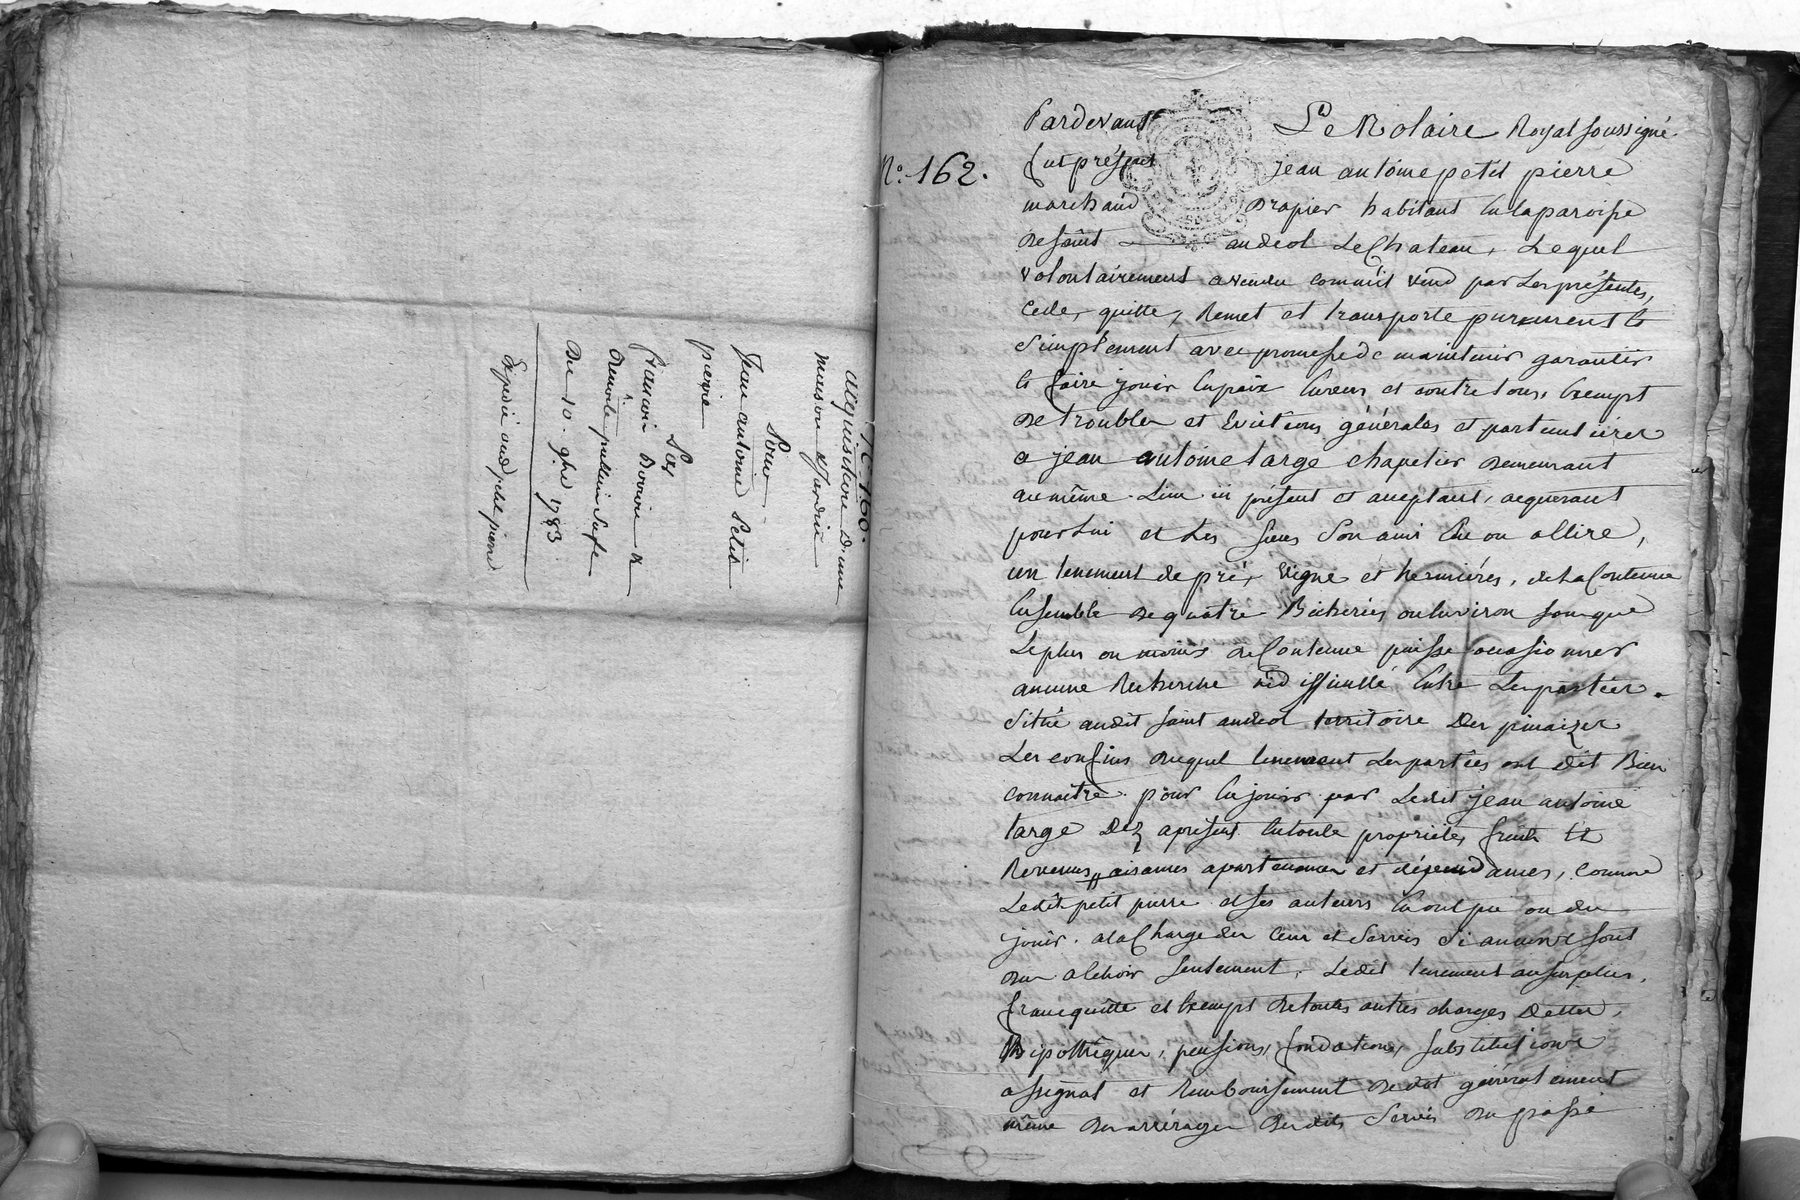 N.° 160.
acquisition D'une
maison & Jardin
Pour
Jean antoine Petit
pierre
Par
francois
Du 10. 9bre 1783
Expedié aud petit pierre
N.° 162.
Pardevant Le Notaire Royal soussigné
fut présent jean antoine petit pierre
marchand Drapier habitant en la paroisse
de saint andeol Le Chateau, Lequel
volontairement a vendu comme il vend par Les présentes,
cede, quitte, Remet et transporte purement Et
simplement avec promesse de maintenir garantir
Et faire jouir En paix Envers et contre tous, Exempt
De troubles et Evictions générales et particulieres
a jean antoine targe chapelier Demeurant
au même Lieu ici présent et acceptant, acquerant
pour Lui et Les siens son ami Elu ou a Elire,
un tenement de pré, vigne et hermiéres, de La Contenue
Ensemble De quatre Bicherées ou Environ sans que
Le plus ou moins de Contenue puisse occasionner
aucune Recherche ni difficulté Entre Les parties.
situé audit saint andeol territoire Des pinaizes
Les confins Duquel tenement Les parties ont dit Bien
connaître. pour En jouir par Ledit jean antoine
targe Dez aprésent En toute proprietés, fruits Et
Revenus, aisances apartenances et dépendances, Comme
Ledit petit pierre et ses auteurs En ont pu ou du
jouir. a la Charge des Cens et Servis si aucuns sont
Dus a Echoir seulement, Ledit tenement au surplus,
franc quitte et Exempt de toutes autres charges Dettes,
hipothêques, pensions, fondations, substitutions
assignat et Remboursement de dot généralement
même Des arrérages Desdits Servis Du passé